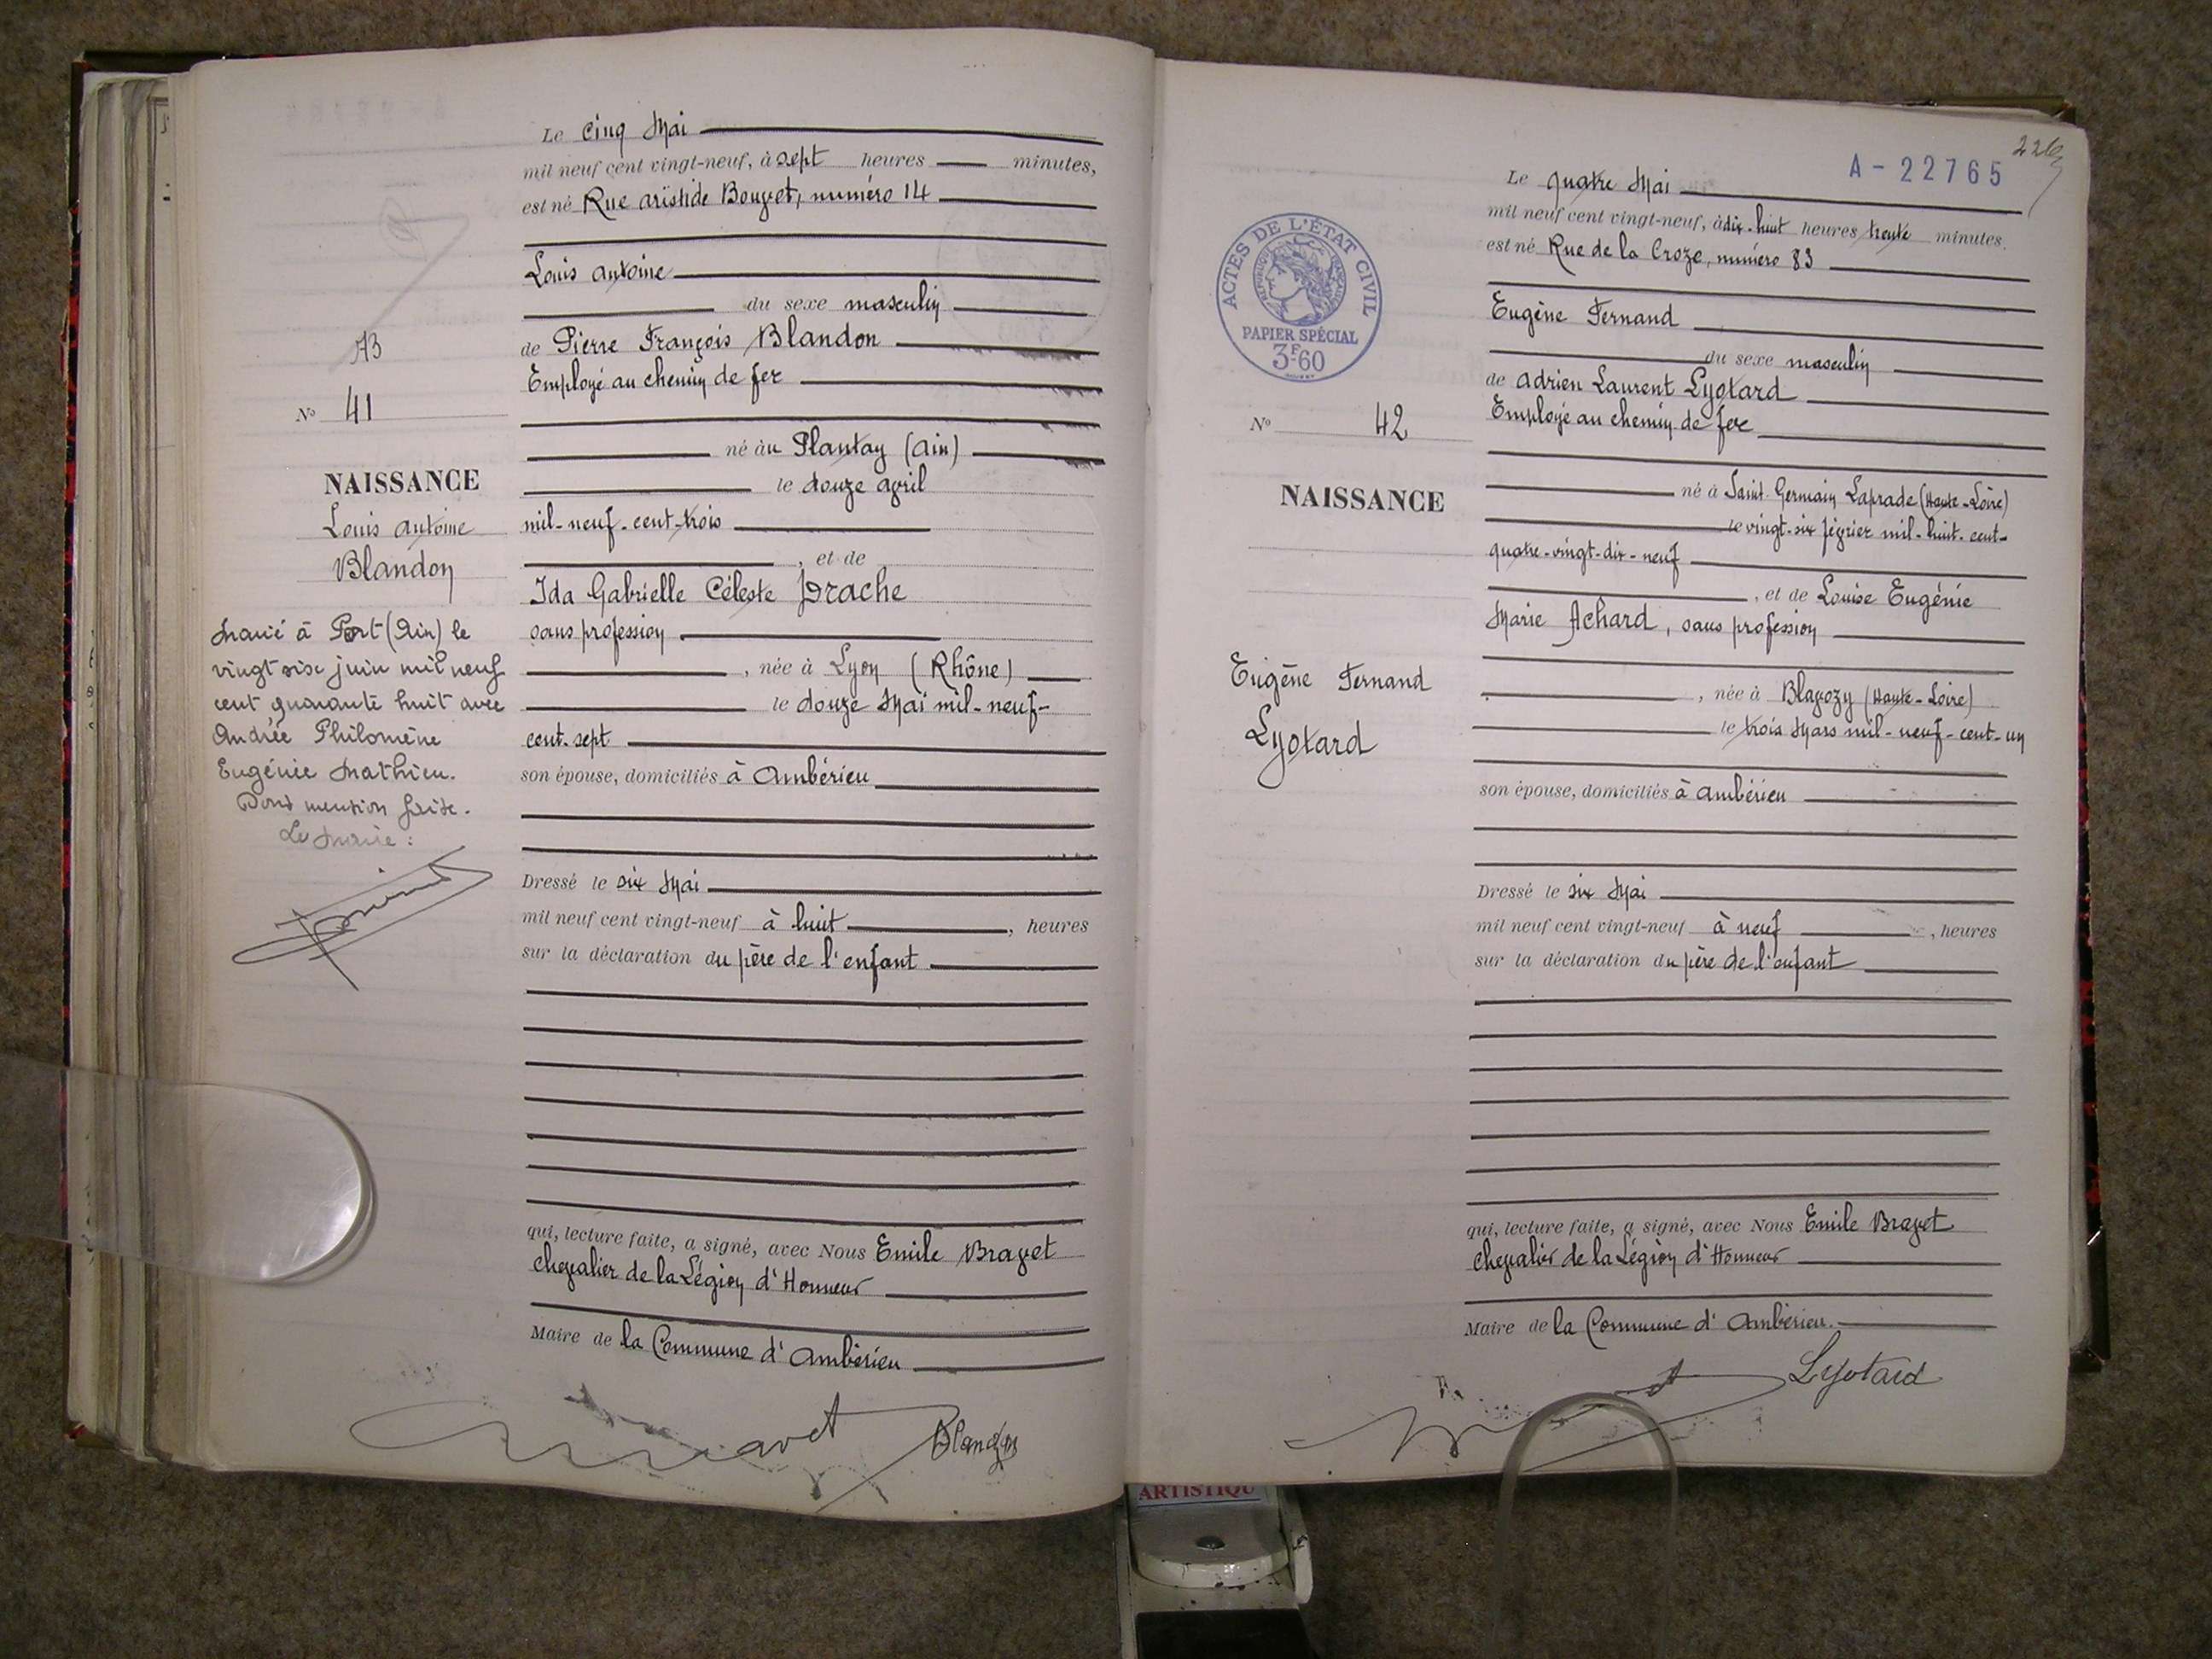 Le cinq Mai
mil neuf cent vingt-neuf, à sept heures minutes,
est né Rue aristide Bouvet, numéro 14
Louis antoine
du sexe masculin
de Pierre François Blandon
Employé au chemin de fer
né au Plantay (Ain)
le douze avril
mil-neuf-cent-trois
, et de
Ida Gabrielle Céleste Brache
sans profession
, née à Lyon (Rhône)
le douze Mai mil-neuf-
cent-sept
son épouse, domiciliés à Ambérieu
Dressé le six Mai
mil neuf cent vingt-neuf à huit , heures
sur la déclaration du père de l'enfant
qui, lecture faite, a signé, avec Nous Emile Bravet
chevalier de la Légion d'Honneur
Maire de la Commune d'Ambérieu
Blandon
N° 41
NAISSANCE
Louis antoine
Blandon
Marié à Port (Ain) le
vingt six juin mil neuf
cent quarante huit avec
Andrée Philomène
Eugénie Mathieu.
Dont mention faite.
Le Maire :
A-22765
Le quatre Mai
mil neuf cent vingt-neuf, à dix-huit heures trente minutes.
est né Rue de la Croze, numéro 83
Eugène Fernand
du sexe masculin
de Adrien Laurent Lyotard
Employé au chemin de fer
né à Saint-Germain Laprade (Haute-Loire)
le vingt-six février mil-huit-cent-
quatre-vingt-dix-neuf
, et de Louise Eugénie
Marie Achard, sans profession
, née à Blavozy (Haute-Loire)
le trois Mars mil-neuf-cent-un
son épouse, domiciliés à Ambérieu
Dressé le six Mai
mil neuf cent vingt-neuf à neuf , heures
sur la déclaration du père de l'enfant
qui, lecture faite, a signé, avec Nous Emile Bravet
chevalier de la Légion d'Honneur
Maire de la Commune d'Ambérieu.
Lyotard
ACTES DE L'ÉTAT CIVIL
RÉPUBLIQUE FRANÇAISE
PAPIER SPÉCIAL
3F60
N° 42
NAISSANCE
Eugène Fernand
Lyotard
ARTISTIQU